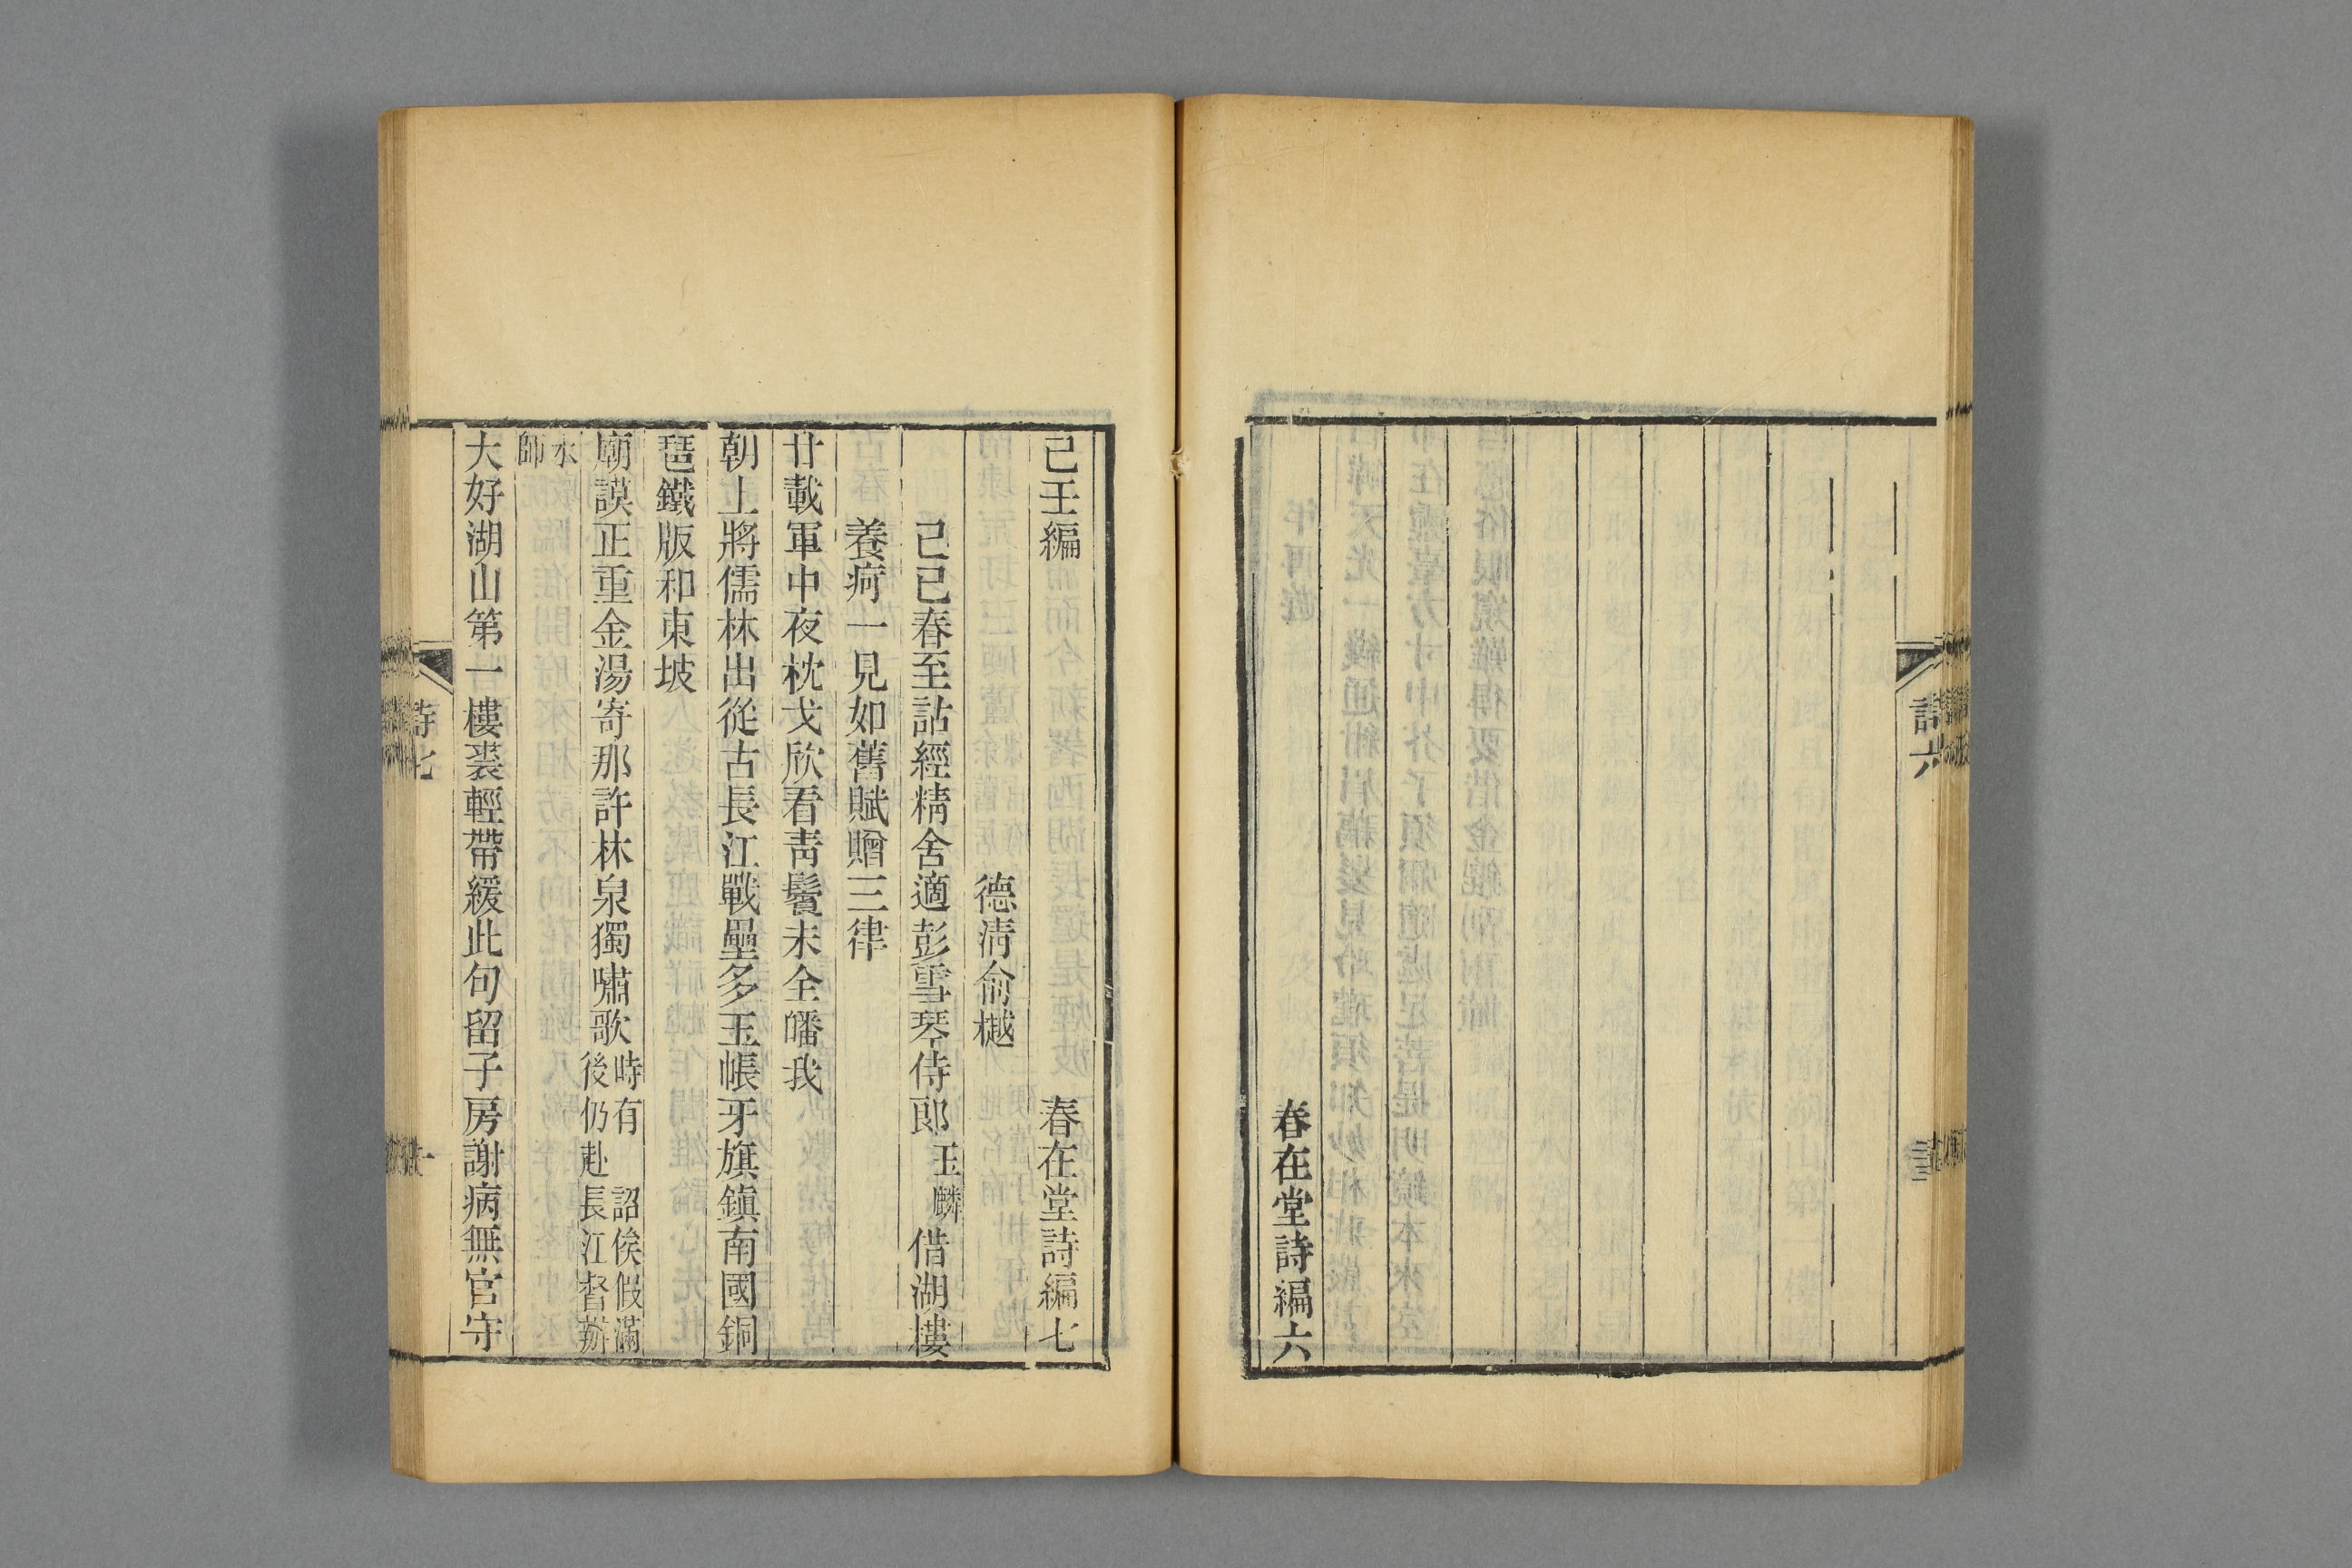 詩六
春在堂詩編六
己壬編 春在堂詩編七
德淸俞樾
己巳春至詁經精舍適彭雪琴侍郎玉麟借湖樓
養疴一見如舊賦贈三律
廿載軍中夜枕戈欣看靑鬢未全皤我
朝上將儒林出從古長江戰壘多玉帳牙旗鎭南國銅
琶鐵版和東坡
廟謨正重金湯寄那許林泉獨嘯歌時有 詔俟假滿後仍赴長江督辦
水師
大好湖山第一樓裘輕帶緩此句留子房謝病無官守
詩七
一